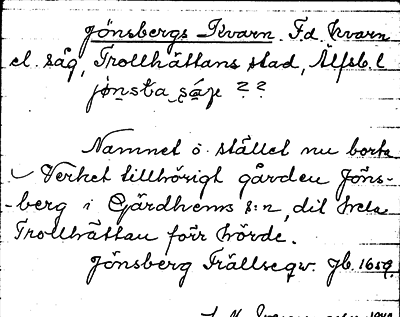 Jönsbergs Kvarn. F.d. kvarn
el. såg, Trollhättans stad, Älfsb. l
jønsta såg ??
Namnet o. stället nu borta
Verket tillhörigt gården Jöns-
-berg i Gärdhems s:n, dit hela
Trollhättan förr hörde.
Jönsberg Frälseqv. Jb. 1659.